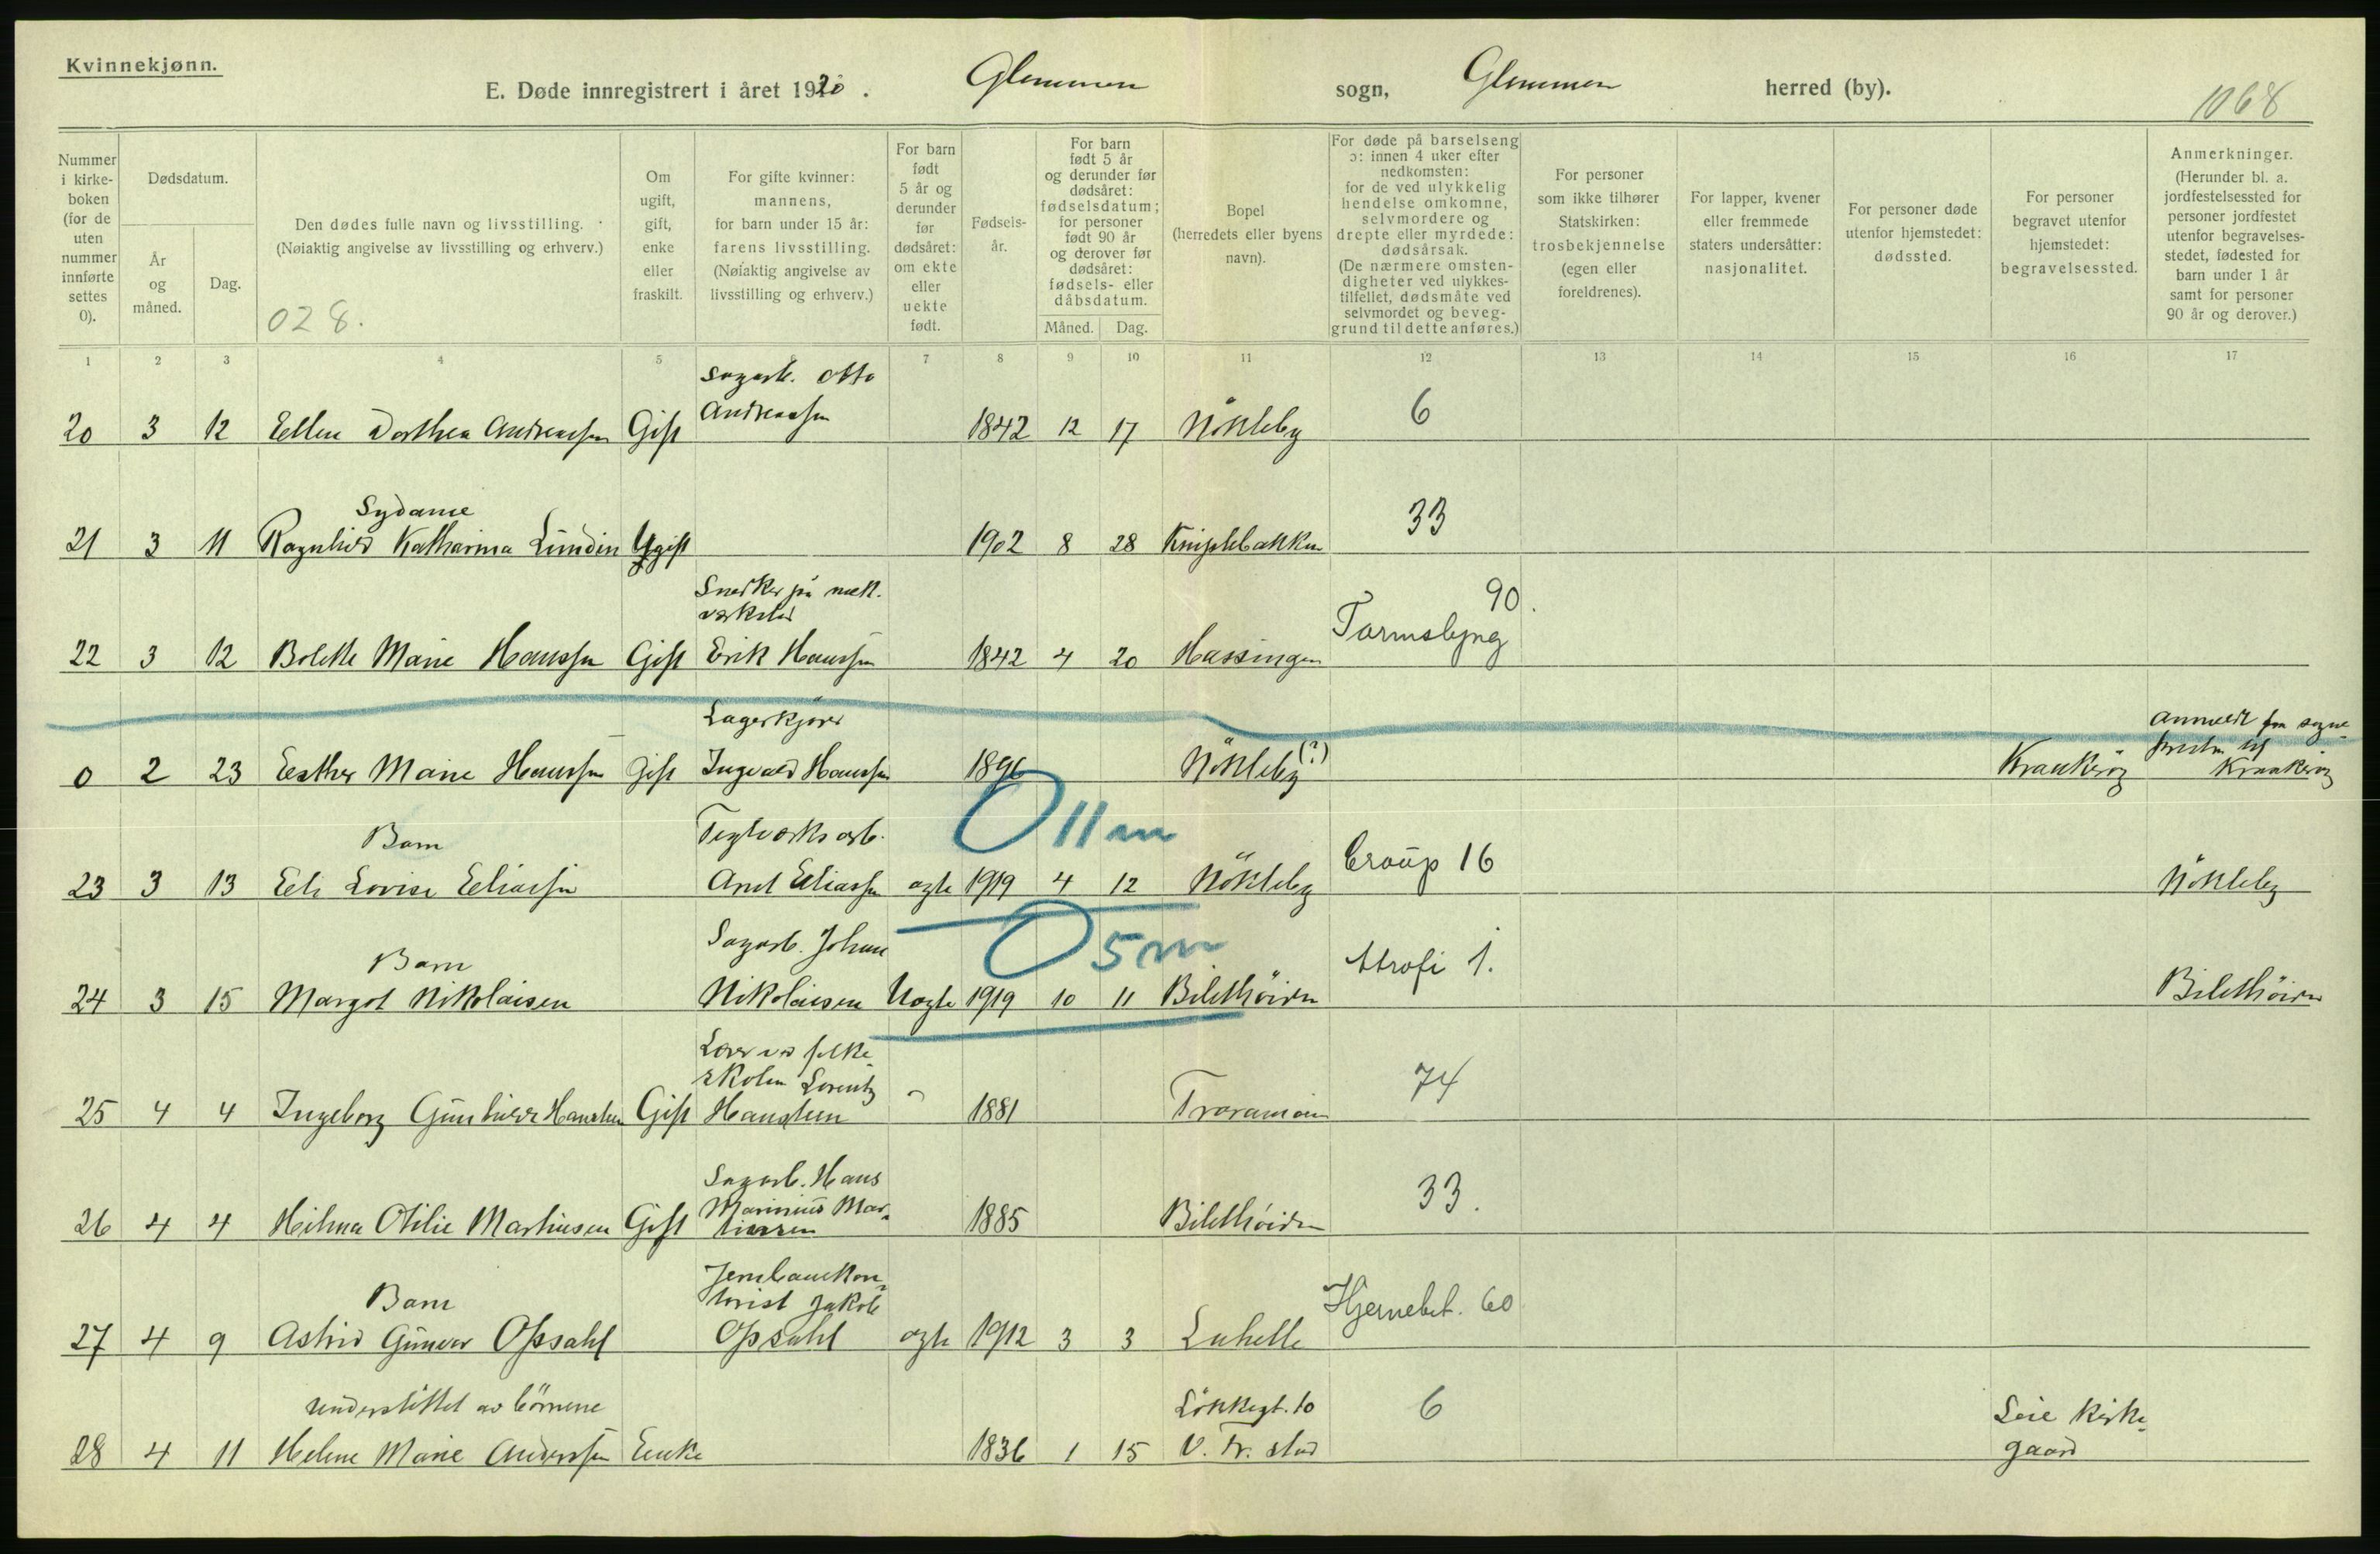 Kvinnekjønn.
E. Døde innregistrert i året 1920. Glemmen sogn, Glemmen herred (by). 1068
Nummer i kirke- boken (for de uten nummer innførte settes 0).
Dødsdatum.
År og måned.
Dag.
Den dødes fulle navn og livsstilling.
(Nøiaktig angivelse av livsstilling og erhverv.)
028.
Om ugift, gift, enke eller fraskilt.
For gifte kvinner: mannens, for barn under 15 år: farens livsstilling. (Nøiaktig angivelse av livsstilling og erhverv.)
For barn født 5 år og derunder før dødsåret: om ekte eller uekte født.
Fødsels- år.
For barn født 5 år og derunder før dødsåret: fødselsdatum; for personer født 90 år og derover før dødsåret: fødsels- eller dåbsdatum.
Måned. Dag.
Bopel (herredets eller byens navn).
For døde på barselseng ɔ: innen 4 uker efter nedkomsten: for de ved ulykkelig hendelse omkomne, selvmordere og drepte eller myrdede: dødsårsak. (De nærmere omsten- digheter ved ulykkes- tilfellet, dødsmåte ved selvmordet og beveg- grund til dette anføres.)
For personer som ikke tilhører Statskirken: trosbekjennelse (egen eller foreldrenes).
For lapper, kvener eller fremmede staters undersåtter: nasjonalitet.
For personer døde utenfor hjemstedet: dødssted.
For personer begravet utenfor hjemstedet: begravelsessted.
Anmerkninger. (Herunder bl. a. jordfestelsessted for personer jordfestet utenfor begravelses- stedet, fødested for barn under 1 år samt for personer 90 år og derover.)
1 2 3 4 5 6 7 8 9 10 11 12 13 14 15 16 17
Sagarb. Otto
20 3 12 Ellen Dorthea Andreassen Gift Andreassen 1842 12 17 Nökleby 6
Sydame
21 3 11 Ragnhild Katharina Lundin Ugift 1902 8 28 Kniplebakken 33
Snedker på mek.
verksted
22 3 12 Bolette Marie Hanssen Gift Erik Hanssen 1842 4 20 Hassingen Tarmslyng 90.
Lagerkjører
0 2 23 Esther Marie Hanssen Gift Ingvald Hanssen 1896 Nökleby (?) Kraakerøy Anmeldt fra sogne-
presten til
Kraakerøy
O 11 m
Barn Teglverksarb.
23 3 13 Eli Lovise Eliassen Arnt Eliassen ægte 1919 4 12 Nökleby Croup 16 Nökleby
O 5 m
Barn Sagarb. Johan
24 3 15 Margot Nikolaisen Nikolaisen Uægte 1919 10 11 Biletthöiden Atrofi 1. Biletthöiden
Lærer ved folke-
skolen Lorentz
25 4 4 Ingeborg Gunhild Hanstein Gift Hanstein 1881 Traramoen 74
Sagarb. Hans
Marinius Mar-
26 4 4 Hilma Otilie Martinsen Gift tinsen 1885 Biletthöiden 33.
Jernbanekon-
Barn torist Jakob
27 4 9 Astrid Gunvor Opsahl Opsahl ægte 1912 3 3 Lahelle Hjernebet. 60
understöttet av börnene Lökkegt. 10
28 4 11 Helene Marie Anderssen Enke 1836 1 15 V. Fr. stad 6 Leie kirke-
gaard